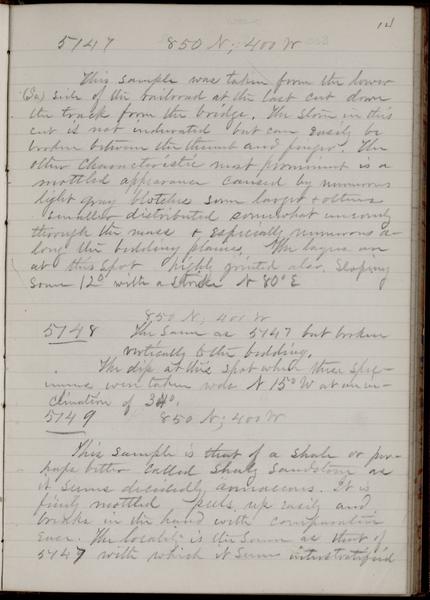 14
5147 850 N; 400 W
This sample was taken from the lower
(In) side of the railroad at the last cut down
the track from the bridge. The stone in this
cut is not indurated but can easily be
broken between the thumb and finger. The
other characteristic most prominent is a
mottled appearance caused by numerous
light gray blotches some larger & others
smaller distributed somewhat unevenly
through the mass & especially numerous a-
long the bedding planes. The layers are
at this spot highly jointed also. Sloping
some 12° with a strike N 80° E
850 N; 400 W
5148 The same as 5147 but broken
vertically to the bedding.
The dip at this spot which these spec-
imens were taken was N 15° W at an in-
clination of 34°.
5149 850 N; 400 W
This sample is that of a shale or per-
haps better called Shaly Sandstone as
it seems decidedly arenaceous. It is
finely mottled peels up easily and
breaks in the hand with comparative
ease. The locality is the same as that of
5147 with which it seems interstratified